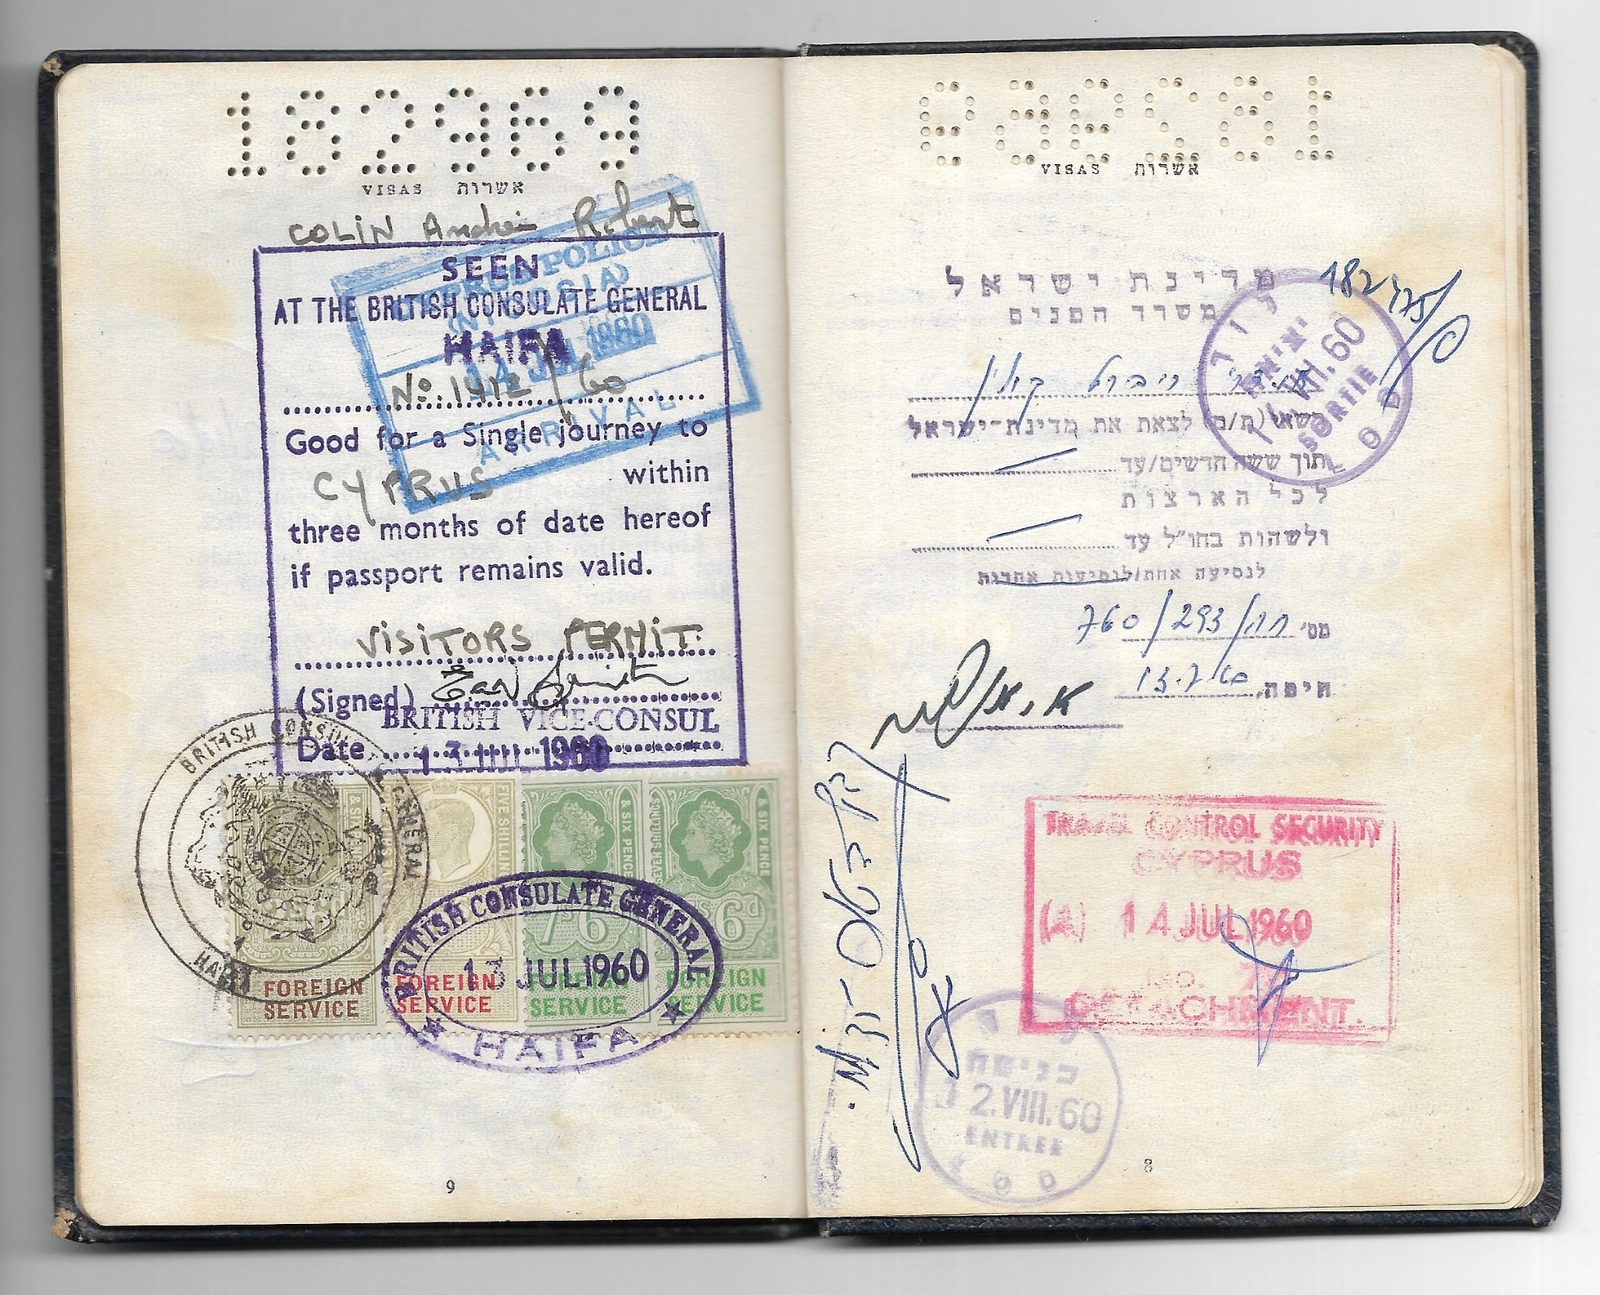 182969
VISAS אשרות
COLIN André Robert
SEEN
AT THE BRITISH CONSULATE GENERAL
HAIFA
No. 1412/60
Good for a Single journey to
CYPRUS within
three months of date hereof
if passport remains valid.
VISITORS PERMIT.
(Signed)
BRITISH VICE-CONSUL
Date 13 JUL 1960
POLICE
1960
ARRIVAL
BRITISH CONSULATE GENERAL
HAIFA
& SIX PENCE
FIVE SHILLIN
& SIX PENCE
SEVEN SHILLINGS
& SIX PENCE
7/6
6d
FOREIGN SERVICE
FOREIGN SERVICE
FOREIGN SERVICE
FOREIGN SERVICE
BRITISH CONSULATE GENERAL
13 JUL 1960
HAIFA
9
182969
VISAS אשרות
מדינת ישראל
משרד הפנים
רוברט קולין
רשאי (ת/ם) לצאת את מדינת-ישראל
תוך ששה חדשים/עד
לכל הארצות
ולשהות בחו"ל עד
לנסיעה אחת/לנסיעות אחדות
מס' חח/293/760
חיפה, 13.7.60
יציאה
VII.60
SORTIE
לוד
TRAVEL CONTROL SECURITY
CYPRUS
(A) 14 JUL 1960
No.
DETACHMENT.
לוד
כניסה
2.VIII.60
ENTREE
8